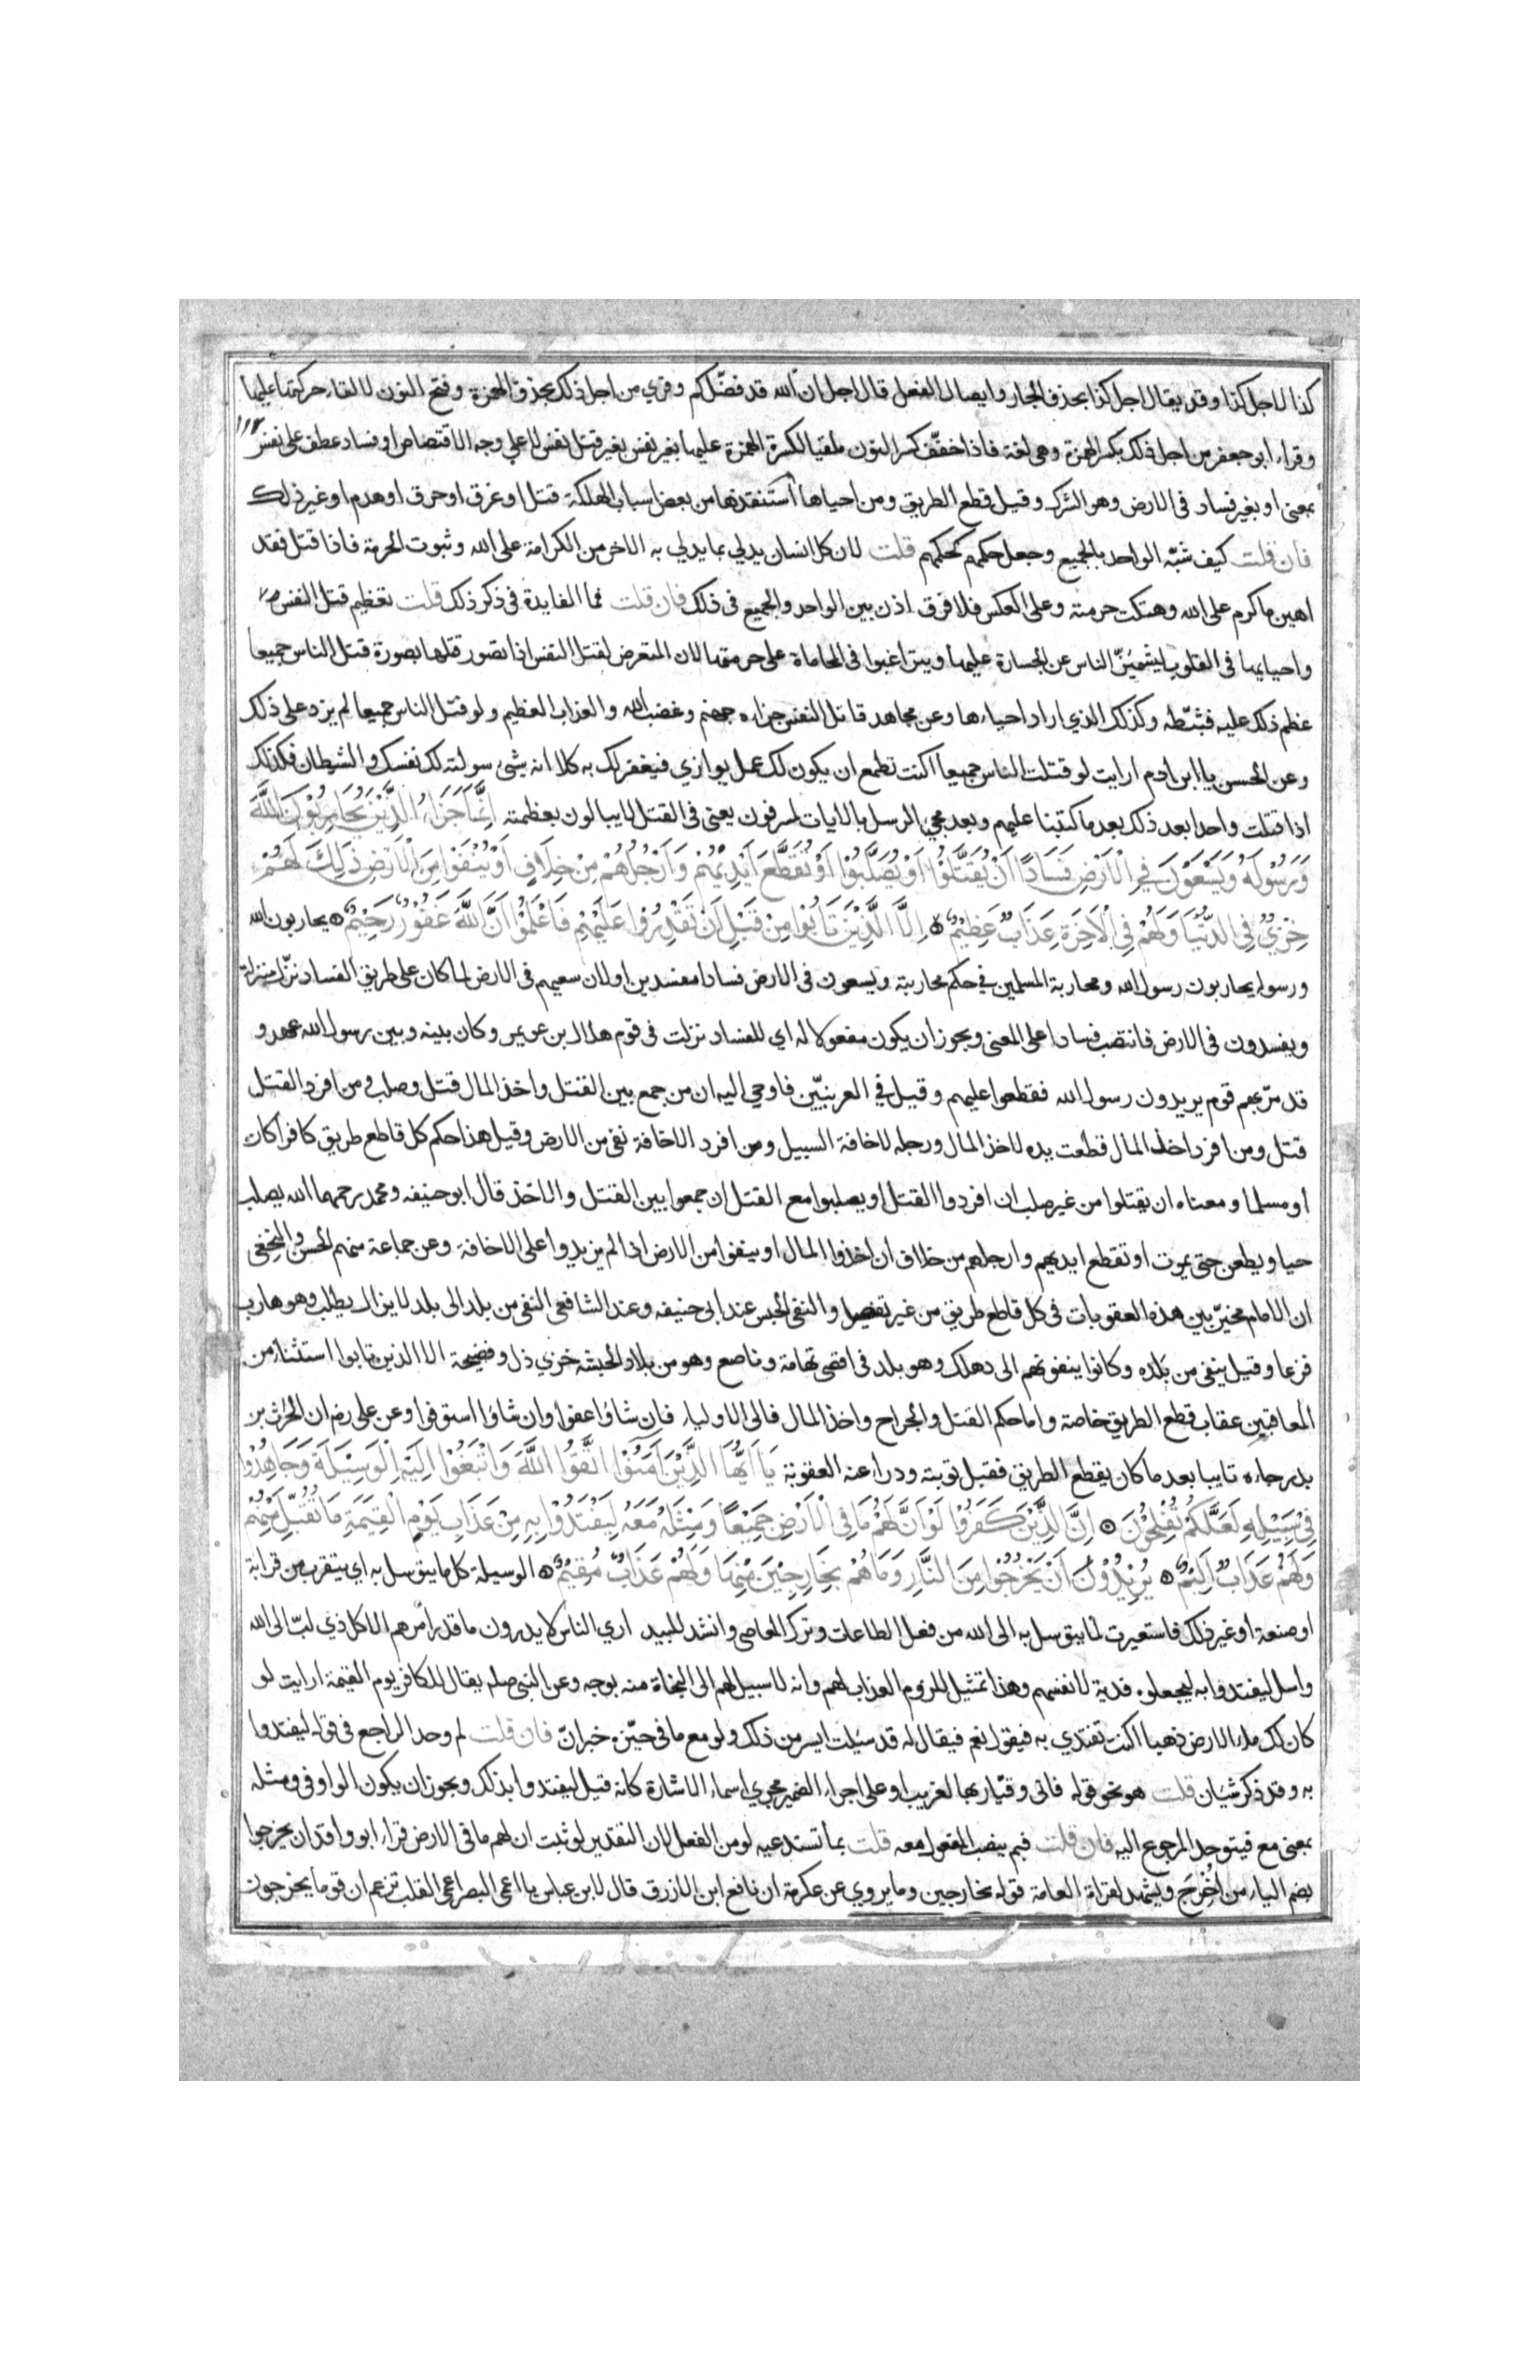 كذا لاجل كذا وقد يقال اجل كذا بحذف الجار وايصال الفعل قال اجل ان الله قد فضّلكم وقري من اجل ذلك بحذف الهمزة وفتح النون لالقاء حركتها عليها
وقراء ابو جعفر من اجل ذلك بكسر الهمزة وهى لغة فاذا خفّف كسر النون ملقيا لكسرة الهمزة عليها بغير نفس بغير قتل نفس لا علي وجه الاقتصاص او فساد عطف على نفس
بمعنى او بغير فساد فى الارض وهو الشرك وقيل قطع الطريق ومن احياها استنقذها من بعض اسباب الهلكة قتل او غرق او حرق او هدم او غير ذلك
فان قلت كيف شبّه الواحد بالجميع وجعل حكمهم كحكمهم قلت لان كل انسان يدلي بما يدلي به الاخر من الكرامة على الله وثبوت الحرمة فاذا قتل فقد
اهين ما كرم على الله وهتكت حرمته وعلى العكس فلا فرق اذن بين الواحد والجميع فى ذلك فان قلت فما الفايدة فى ذكر ذلك قلت تعظيم قتل النفس
واحيايها فى القلوب ليشمئزّ الناس عن الجسارة عليها ويتراغبوا فى المحاماة على حرمتها لان المتعرض لقتل النفس اذا تصور قتلها بصورة قتل الناس جميعا
عظم ذلك عليه فثبّطه وكذلك الذي اراد احياءها وعن مجاهد قاتل النفس جزاءه جهنم وغضب الله والعذاب العظيم ولو قتل الناس جميعا لم يزد على ذلك
وعن الحسن يا ابن ادم ارايت لو قتلت الناس جميعا اكنت تطمع ان يكون لك عمل يوازي فيغفر لك به كلا انه شيء سولته لك نفسك والشيطان فكذلك
اذا قتلت واحدا بعد ذلك بعد ما كتبنا عليهم وبعد مجئ الرسل بالايات لمسرفون يعنى فى القتل لا يبالون بعظمته اِنَّمَا جَزَاءُ الَّذِيْنَ يُحَارِبُوْنَ اللّٰهَ
وَرَسُوْلَهُ وَيَسْعَوْنَ فِي الْاَرْضِ فَسَادًا اَنْ يُقَتَّلُوْا اَوْ يُصَلَّبُوْا اَوْ تُقَطَّعَ اَيْدِيْهِمْ وَاَرْجُلُهُمْ مِنْ خِلَافٍ اَوْ يُنْفَوْا مِنَ الْاَرْضِ ذٰلِكَ لَهُمْ
خِزْيٌ فِي الدُّنْيَا وَلَهُمْ فِي الْاٰخِرَةِ عَذَابٌ عَظِيْمٌ ۞ اِلَّا الَّذِيْنَ تَابُوا مِنْ قَبْلِ اَنْ تَقْدِرُوا عَلَيْهِمْ فَاعْلَمُوْا اَنَّ اللّٰهَ غَفُوْرٌ رَحِيْمٌ ۞ يحاربون الله
ورسوله يحاربون رسول الله ومحاربة المسلمين في حكم محاربته ويسعون فى الارض فسادا مفسدين او لان سعيهم فى الارض لما كان على طريق الفساد نزّل منزلة
ويفسدون فى الارض فانتصب فسادا على المعنى ويجوز ان يكون مفعولا له اي للفساد نزلت فى قوم هلال بن عويمر وكان بينه وبين رسول الله عهد و
قد مرّ بهم قوم يريدون رسول الله فقطعوا عليهم وقيل في العرنيّين فاوحي اليه ان من جمع بين القتل واخذ المال قتل وصلب ومن افرد القتل
قتل ومن افرد اخذ المال قطعت يده لاخذ المال ورجله لاخافة السبيل ومن افرد الاخافة نفى من الارض وقيل هذا حكم كل قاطع طريق كافرا كان
او مسلما ومعناه ان يقتلوا من غير صلب ان افردوا القتل او يصلبوا مع القتل ان جمعوا بين القتل والاخذ قال ابو حنيفه ومحمد رحمهما الله يصلب
حيا ويطعن حتى يموت او تقطع ايديهم وارجلهم من خلاف ان اخذوا المال او ينفوا من الارض اذا لم يزيدوا على الاخافة وعن جماعة منهم الحسن والنخعى
ان الامام مخيّر بين هذه العقوبات فى كل قاطع طريق من غير تفصيل والنفى الحبس عند ابى حنيفه وعند الشافعى النفى من بلد الى بلد لا يزال يطلب وهو هارب
فزعا وقيل ينفى من بلده وكانوا ينفونهم الى دهلك وهو بلد فى اقصى تهامة وناصع وهو من بلاد الحبشه خزي ذل وفضيحة الا الذين تابوا استثناء من
المعاقبين عقاب قطع الطريق خاصة واما حكم القتل والجراح واخذ المال فالى الاولياء فان شاؤا عفوا وان شاؤا استوفوا وعن على رضه ان الحرث بن
بدر جاءه تايبا بعد ما كان يقطع الطريق فقبل توبته ودرا عنه العقوبة يَا اَيُّهَا الَّذِيْنَ اٰمَنُوْا اتَّقُوْا اللّٰهَ وَابْتَغُوْا اِلَيْهِ الْوَسِيْلَةَ وَجَاهِدُوْا
فِيْ سَبِيْلِهِ لَعَلَّكُمْ تُفْلِحُوْنَ ۞ اِنَّ الَّذِيْنَ كَفَرُوْا لَوْ اَنَّ لَهُمْ مَا فِى الْاَرْضِ جَمِيْعًا وَمِثْلَهُ مَعَهُ لِيَفْتَدُوْا بِهِ مِنْ عَذَابِ يَوْمِ الْقِيٰمَةِ مَا تُقُبِّلَ مِنْهُمْ
وَلَهُمْ عَذَابٌ اَلِيْمٌ ۞ يُرِيْدُوْنَ اَنْ يَخْرُجُوْا مِنَ النَّارِ وَمَا هُمْ بِخَارِجِيْنَ مِنْهَا وَلَهُمْ عَذَابٌ مُقِيْمٌ ۞ الوسيلة كل ما يتوسل به اي يتقرب من قرابة
او صنعة او غير ذلك فاستعيرت لما يتوسل به الى الله من فعل الطاعات وترك المعاصى وانشد للبيد اري الناس لا يدرون ما قدر امرهم الا كل ذي لبّ الى الله
واسل ليفتدوا به ليجعلوه فدية لانفسهم وهذا تمثيل للزوم العذاب لهم وانه لا سبيل لهم الى النجاة منه بوجه وعن النبى صلعم يقال للكافر يوم القيمة ارايت لو
كان لك ملء الارض ذهبا اكنت تفتدي به فيقول نعم فيقال له قد سئلت ايسر من ذلك ولو مع ما فى حيّزه خبر انّ فان قلت لم وحد الراجع فى قوله ليفتدوا
به وقد ذكر شيئان قلت هو نحو قوله فانى وقيّار بها لغريب او على اجراء الضمير مجري اسماء الاشارة كانه قيل ليفتدوا بذلك ويجوز ان يكون الواو فى ومثله
بمعنى مع فيتوحد المرجوع اليه فان قلت فبم ينصب المفعول معه قلت بما تستدعيه لو من الفعل لان التقدير لو ثبت ان لهم ما فى الارض قراء ابو واقد ان يخرجوا
بضم الياء من اُخْرِجَ ويشهد لقراة العامة قوله بخارجين وما يروي عن عكرمة ان نافع ابن الازرق قال لابن عباس يا اعمى البصر اعمى القلب تزعم ان قوما يخرجون